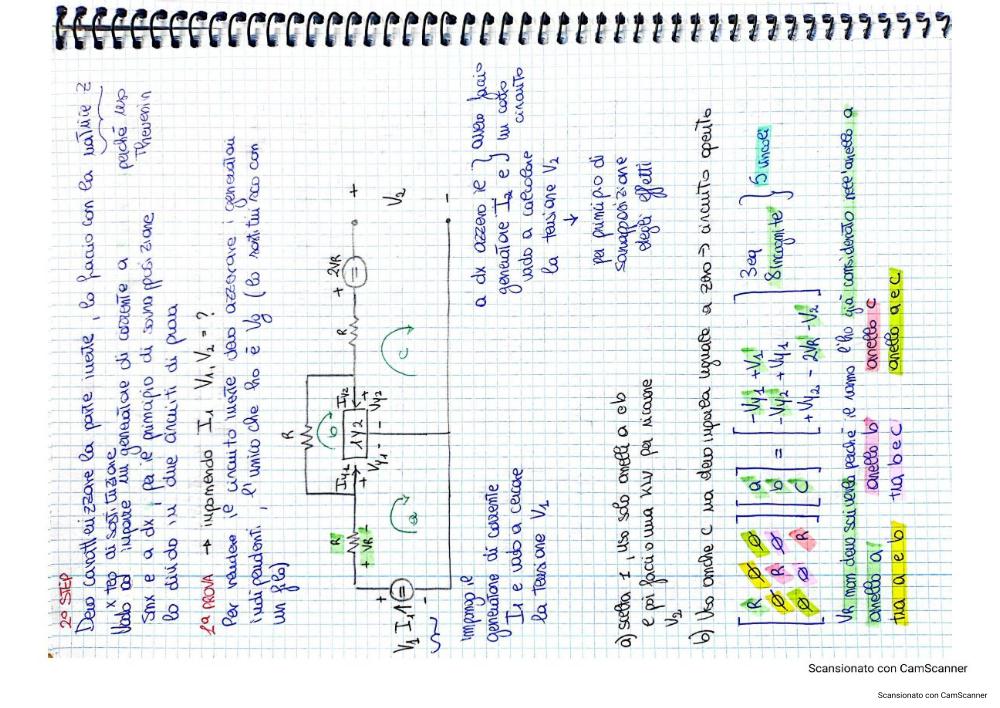 2° STEP
Devo caratterizzare la parte inerte, lo faccio con la matrice Z
x teo di sostituzione
perché uso
Thevenin
Vado ad imporre un generatore di corrente a
Sinx e a dx; per il principio di sovrapposizione
lo divido in due circuiti di prova
1ª PROVA → imponendo I1 V1, V2 = ?
Per rendere il circuito inerte devo azzerare i generatori
indipendenti, l'unico che ho è Vg (lo sostituisco con
un filo)
R
R
+ VR -
Iy1
Iy2
1Y2
+ Vy1 -
- Vy2 +
R
+ 2VR
+
V2
-
V1 I1
+
-
a
b
c
impongo il
generatore di corrente
I1 e vado a cercare
la tensione V1
a dx azzero il
generatore I2 e
vado a calcolare
la tensione V2
avrò facio
un corto
circuito
↓
per principio di
sovrapposizione
degli effetti
a) scelta 1, uso solo anelli a e b
e poi faccio una KLV per ricavare
V2
b) Uso anche C ma devo imporla uguale a zero → circuito aperto
R Ø Ø
Ø R Ø
Ø Ø R
a
b
c
=
-Vy1 + V1
-Vy2 + Vy1
+Vy2 - 2VR - V2
3 eq
8 incognite
5 vincoli
VR non devo scriverla perché il ramo l'ho già considerato nell'anello a
anello a
anello b
anello c
tra a e b
tra b e c
anello a e c
Scansionato con CamScanner
Scansionato con CamScanner